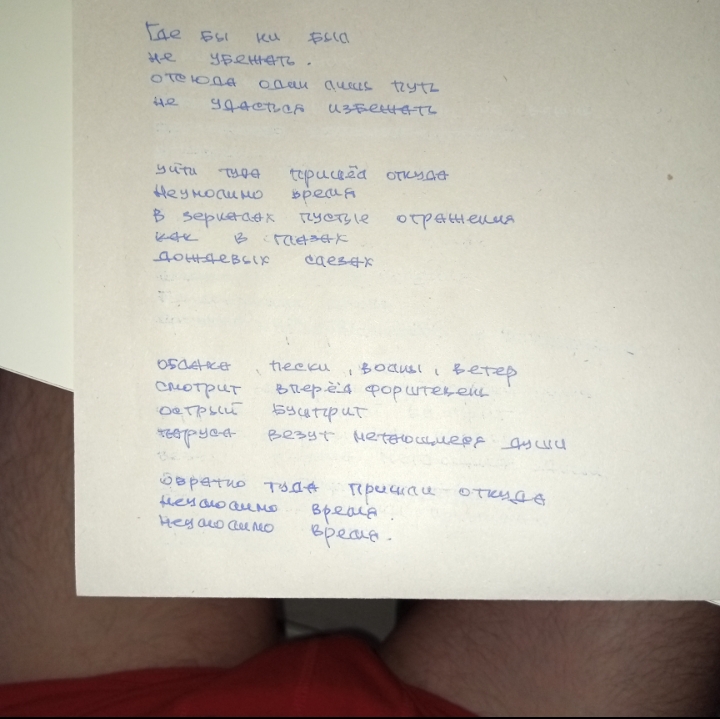 Где бы ни был
не убежать.
отсюда один лишь путь
не удасться избежать
уйти туда пришёл откуда
Неумолимо время
В зеркалах пустые отражения
как в глазах
дождевых слезах
облака, пески, волны, ветер
смотрит вперёд форштевень
острый бушприт
паруса везут метающиеся души
обратно туда пришли откуда
неумолимо время.
неумолимо время.